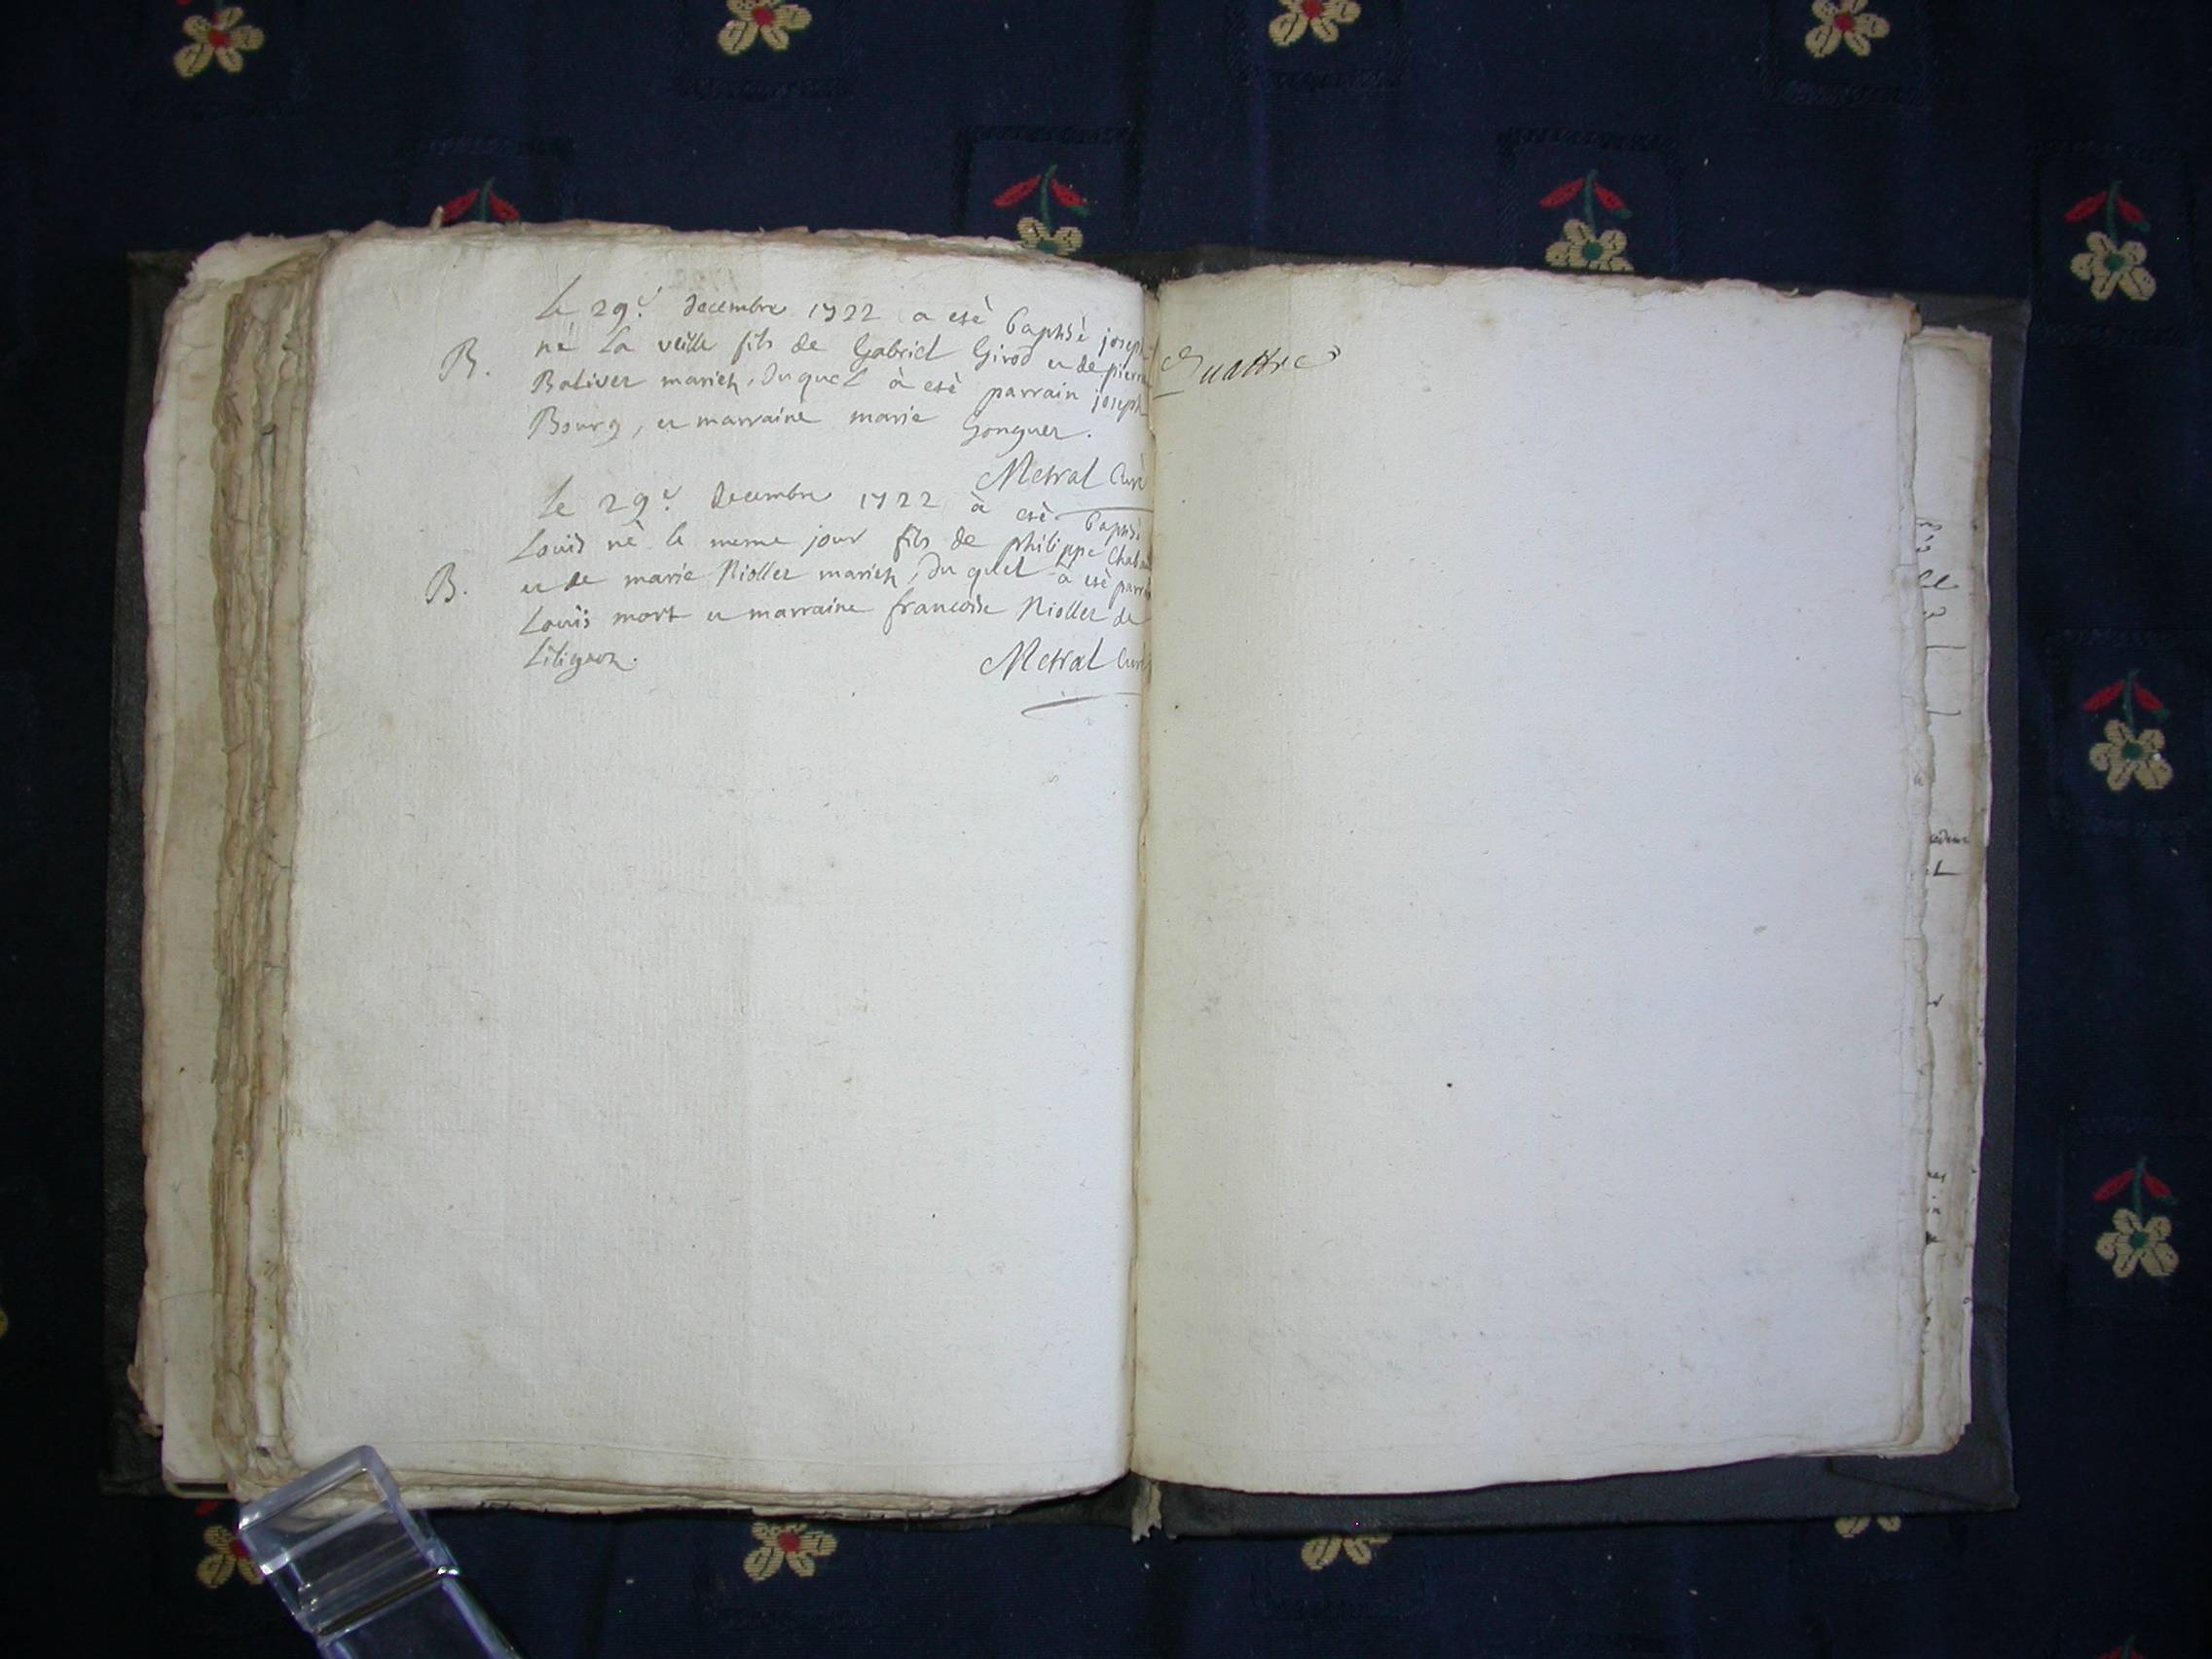 Le 29.e decembre 1722 a esté baptisé joseph
né La veille fils de Gabriel Girod et de pierra
B. Baliver mariez, duquel à esté parrain joseph
Bourg, et marraine marie Gonguer.
Metral Curé
Le 29.e decembre 1722 à esté baptisé
Louis né le meme jour fils de philippe
B. et de marie Riollet mariez, du quel à esté
Louis mort et marraine francoise Riollet de
Metral Curé
Quattre